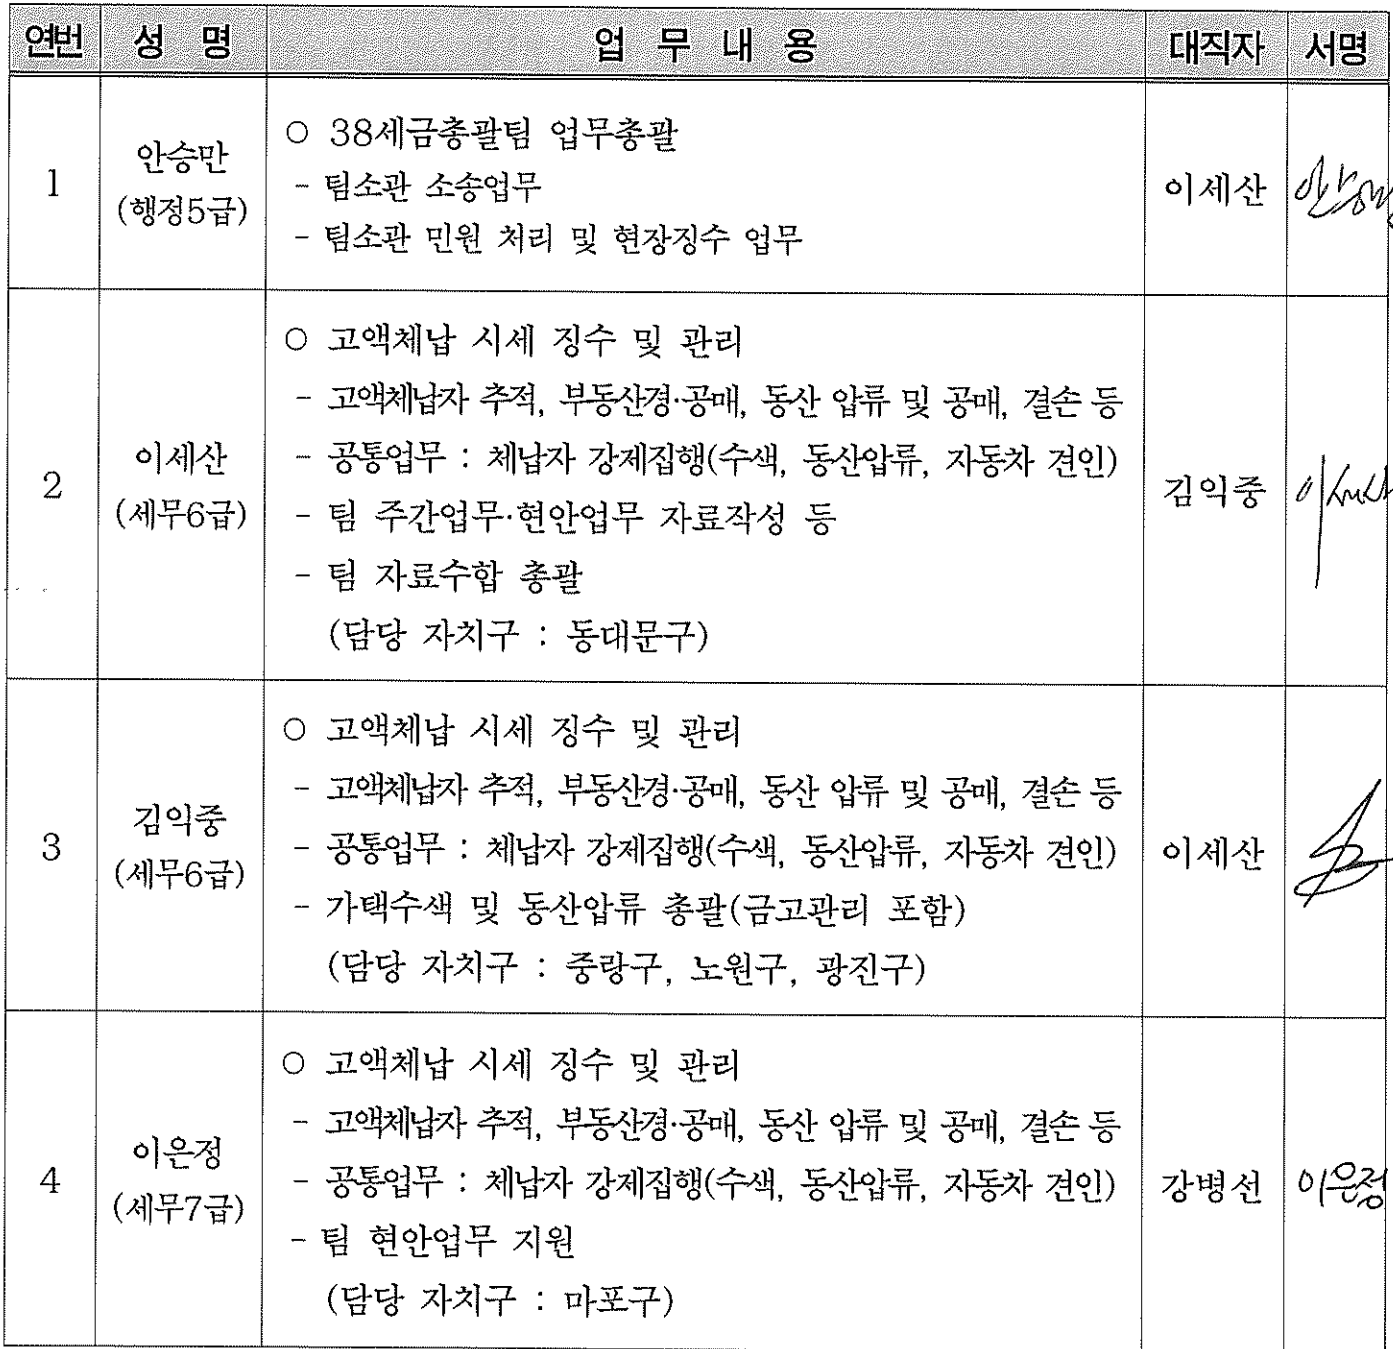 연번 성 명 업 무 내 용 대직자 서명
1 안승만 (행정5급) 이세산 안승만
○ 38세금총괄팀 업무총괄
- 팀소관 소송업무
- 팀소관 민원 처리 및 현장징수 업무
2 이세산 (세무6급) 김익중 이세산
○ 고액체납 시세 징수 및 관리
- 고액체납자 추적, 부동산경·공매, 동산 압류 및 공매, 결손 등
- 공통업무 : 체납자 강제집행(수색, 동산압류, 자동차 견인)
- 팀 주간업무·현안업무 자료작성 등
- 팀 자료수합 총괄
(담당 자치구 : 동대문구)
3 김익중 (세무6급) 이세산
○ 고액체납 시세 징수 및 관리
- 고액체납자 추적, 부동산경·공매, 동산 압류 및 공매, 결손 등
- 공통업무 : 체납자 강제집행(수색, 동산압류, 자동차 견인)
- 가택수색 및 동산압류 총괄(금고관리 포함)
(담당 자치구 : 중랑구, 노원구, 광진구)
4 이은정 (세무7급) 강병선 이은정
○ 고액체납 시세 징수 및 관리
- 고액체납자 추적, 부동산경·공매, 동산 압류 및 공매, 결손 등
- 공통업무 : 체납자 강제집행(수색, 동산압류, 자동차 견인)
- 팀 현안업무 지원
(담당 자치구 : 마포구)